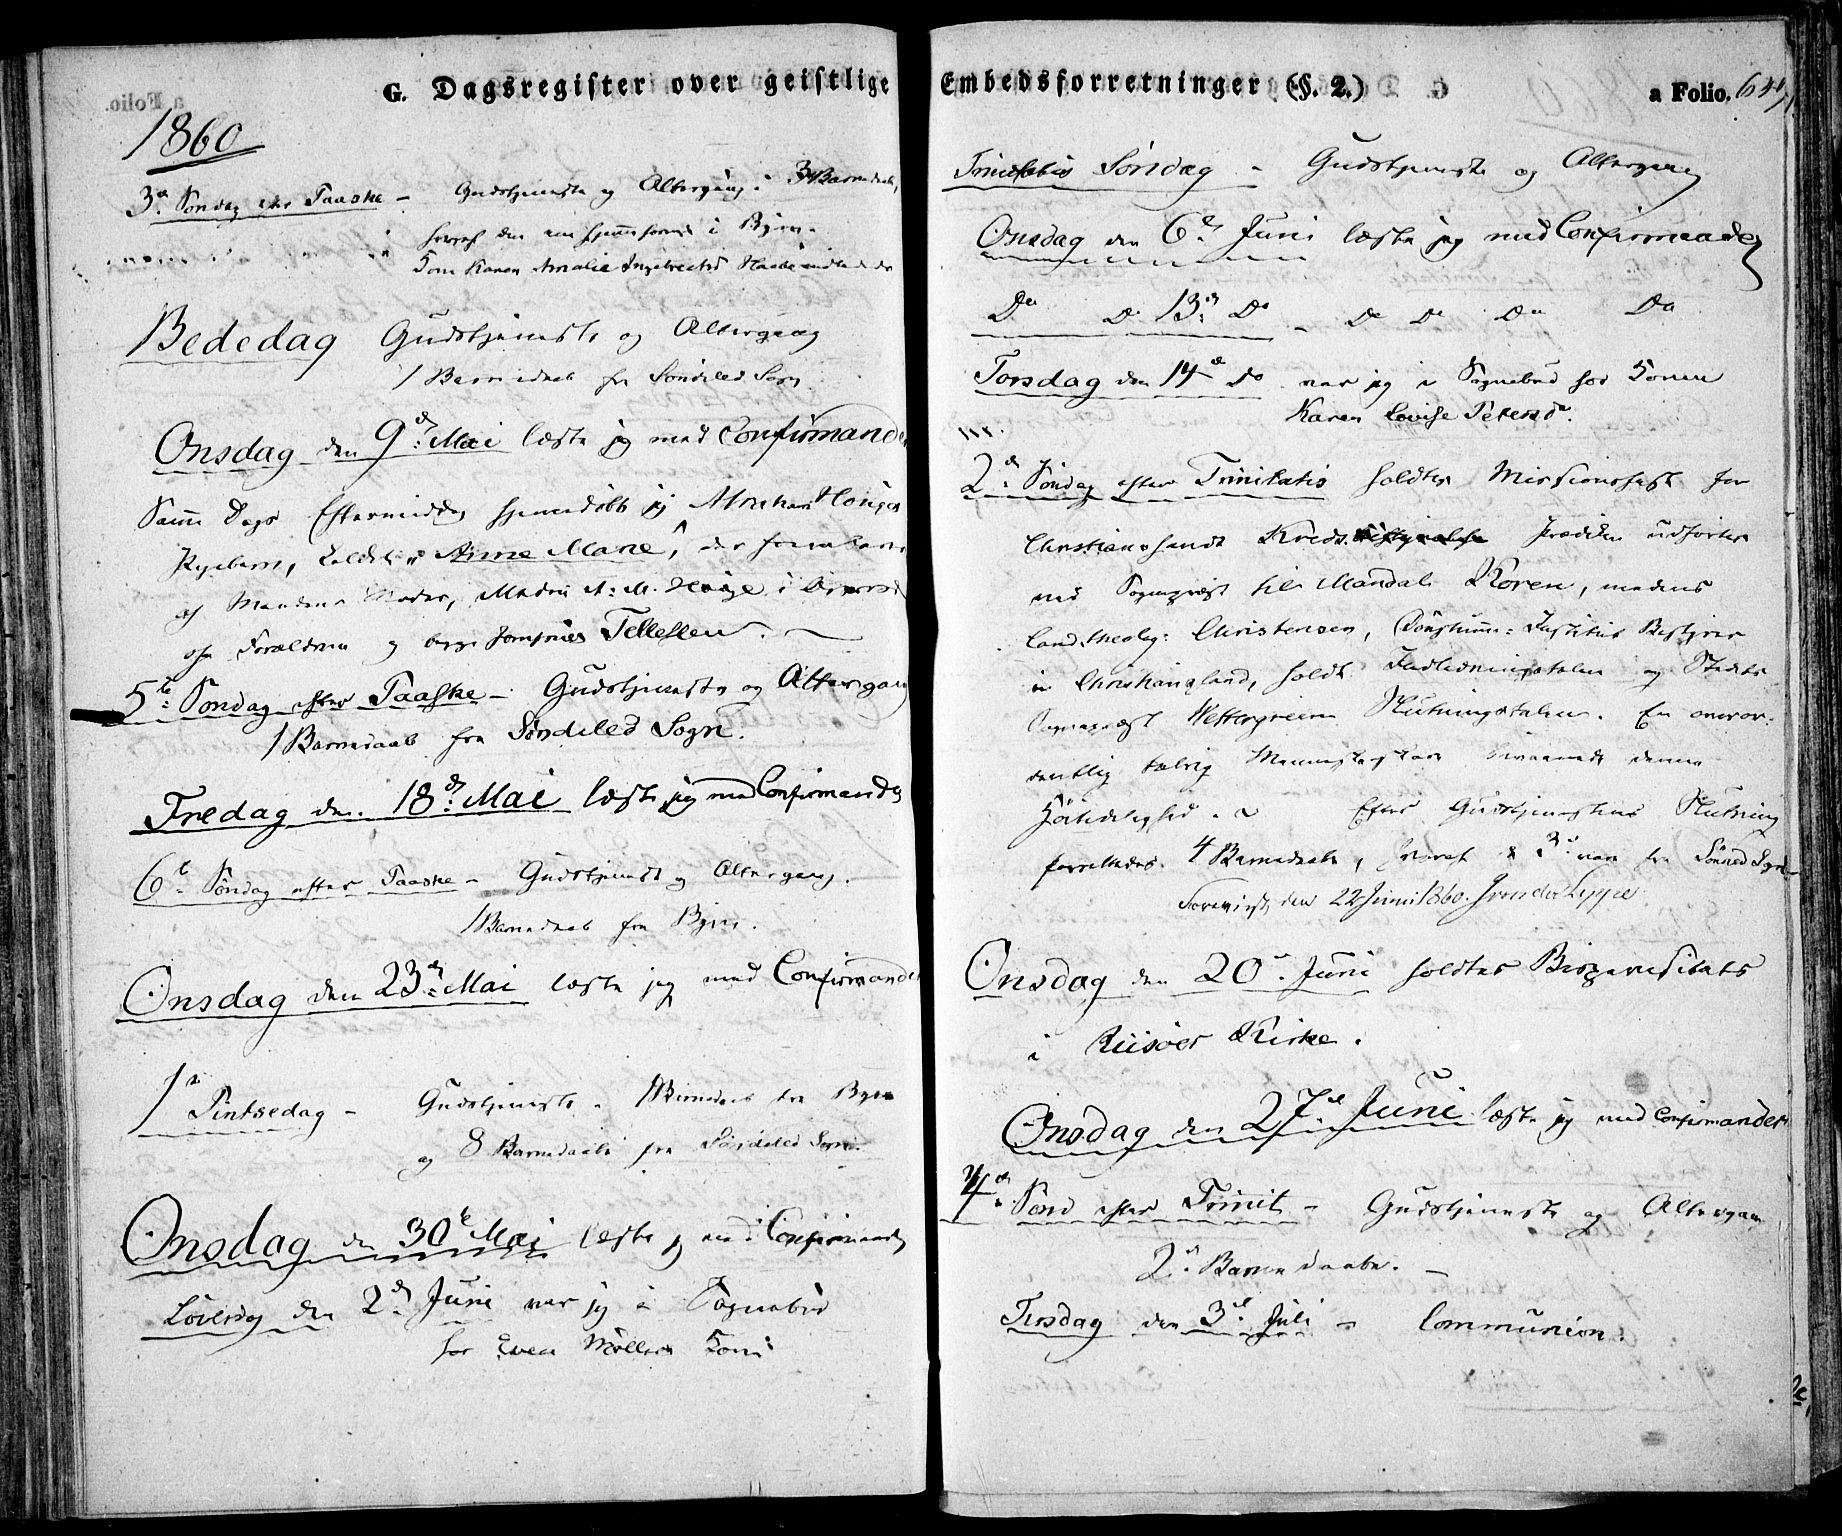 G. Dagsregister over geistlige
1860
3die Søndag efter Paaske – Gudstjeneste og Altergang. 3 Barnedaab,
hvoraf den ene hjemmefored i Byen.
Karen Amalie Ingebrectsd
Bededag Gudstjeneste og Altergang
1 Barnedaab fra Søndeled Sogn
Onsdag den 9de Mai læste jeg med Confirmander
Samme Dags Eftermiddag hjemmedøbte jeg Abraham
kaldet Anne Marie, der frembares
af Mandens Moder, Madm A: M. i
og Forældrene og begge Jomfruer Tellefsen.
5te Søndag efter Paaske – Gudstjeneste og Altergang
1 Barnedaab fra Søndeled Sogn.
Fredag den 18de Mai læste jeg med Confirmander
6te Søndag efter Paaske – Gudstjeneste og Altergang.
1 Barnedaab fra Byen.
Onsdag den 23de Mai læste jeg med Confirmander
1ste Pintsedag – Gudstjeneste – 1 Barnedaab fra Byen
og 8 Barnedaabe fra Søndeled Sogn
Onsdag den 30te Mai læste jeg med Confirmander
Løverdag den 2den Juni var jeg i Sognebud
for Møllers Kone
Embedsforretninger (§. 2.) a Folio.
Trinitatis Søndag – Gudstjeneste og Altergang
Onsdag den 6te Juni læste jeg med Confirmander
Do Do 13de Do – Do Do Do Do
Torsdag den 14de Do var jeg i Sognebud hos Konen
Karen Lovise Petersd.
2den Søndag efter Trinitatis holdtes Missionsfest for
Christianssands Kreds. Præken udførtes
ved Sognepræst til Mandal Koren, medens
Cand. theolog: Christensen, Døvstumme-Instituts Bestyrer
i Christianssand, holdt Indledningstalen og Stedets
Sognepræst Wettergreen Slutningstalen. En overor-
dentlig talrig Menneskeskare bivaanede denne
Høitidelighed. – Efter Gudstjenestens Slutning
forrettedes 4 Barnedaabe, hvoraf 3 var fra Sønded Sogn
Foreviist den 22 Juni 1860.
Onsdag den 20de Juni holdtes Bispevisitats
i Riisøer Kirke.
Onsdag den 27de Juni læste jeg med Confirmander
4de Sønd efter Trinit – Gudstjeneste og Altergang
2de Barnedaabe. –
Tirsdag den 3die Juli – Communion.